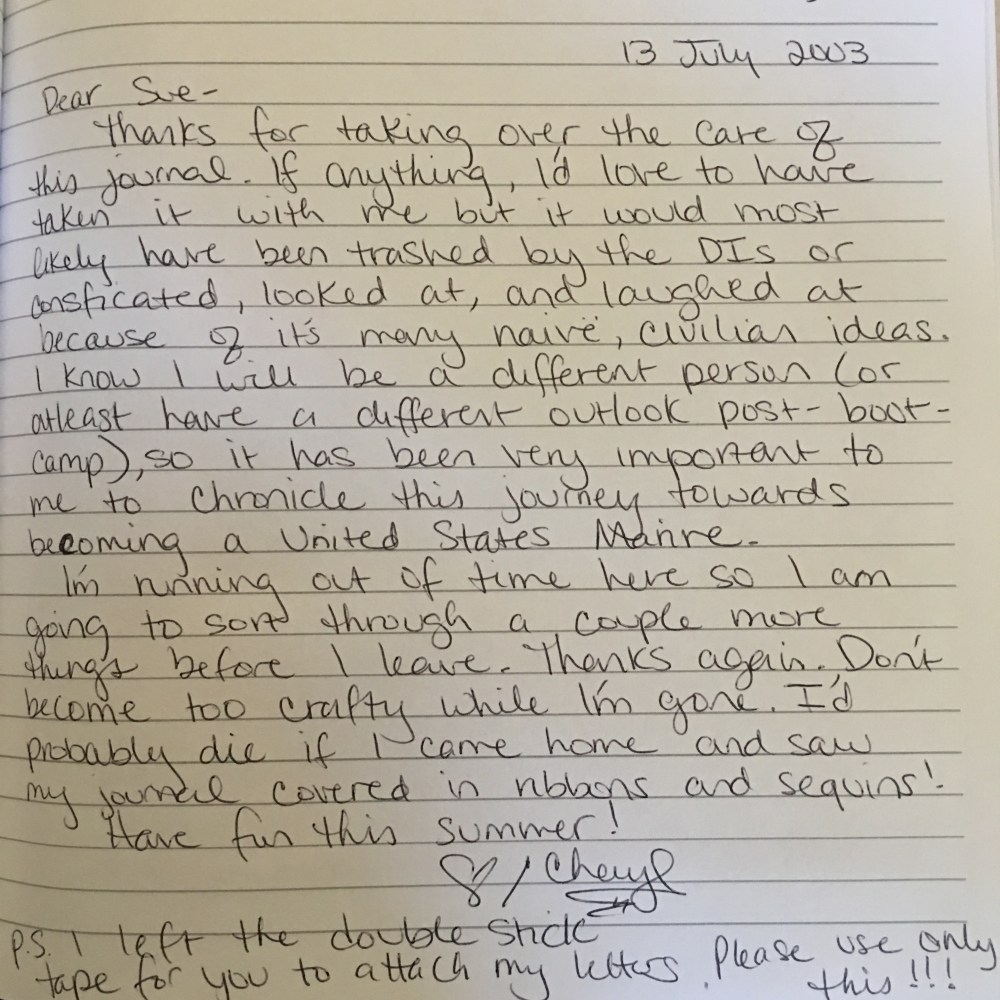 13 July 2003
Dear Sue-
thanks for taking over the care of
this journal. If anything, I'd love to have
taken it with me but it would most
likely have been trashed by the DIs or
consficated, looked at, and laughed at
because of it's many naïve, civilian ideas.
I know I will be a different person (or
atleast have a different outlook post-boot-
camp), so it has been very important to
me to chronicle this journey towards
becoming a United States Marine.
I'm running out of time here so I am
going to sort through a couple more
things before I leave. Thanks again. Don't
become too crafty while I'm gone. I'd
probably die if I came home and saw
my journal covered in ribbons and sequins!
Have fun this summer!
♡/Cheryl
P.S. I left the double stick
tape for you to attach my letters. Please use only
this!!!